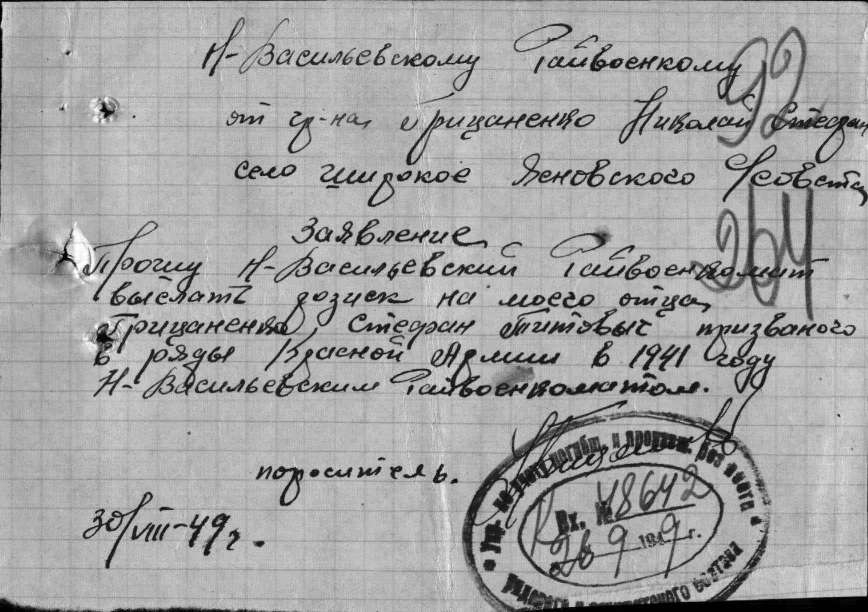 Н-Васильевскому Райвоенкому
92
от гр-на Грицаненко Николай Стефан
село Широкое Ясновского с/совета
264
Заявление
Прошу Н-Васильевский Райвоенкомат
выслать розиск на моего отца
Грицаненко Стефан Титовыч призваного
в ряды Красной Армии в 1941 году
Н-Васильевским Райвоенкоматом.
поросител​ь.
30/VIII-49 г.
Упр. по учету погибш. и пропавш. без вести
Вх. № 48642
26 9 1949 г.
рядового и сержантского состава